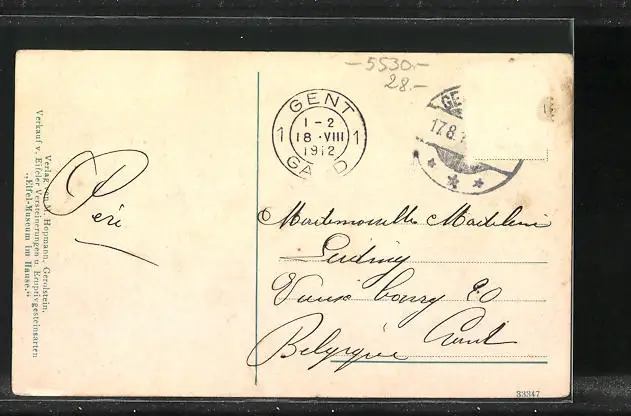 -5530.-
28.-
GENT
1-2
1 18·VIII 1
1912
GA D
GE
17.8.1
Mademoiselle Madeleine
20
Gand
Belgique
Verlag von M. Hopmann, Gerolstein.
Verkauf v. Eifeler Versteinerungen u. Eruptivgesteinsarten
„Eifel-Museum im Hause."
33347